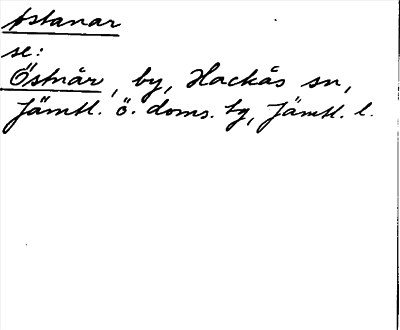 Östanar
se:
Östnår, by, Hackås sn,
Jämtl. ö. doms. tg, Jämtl. l.